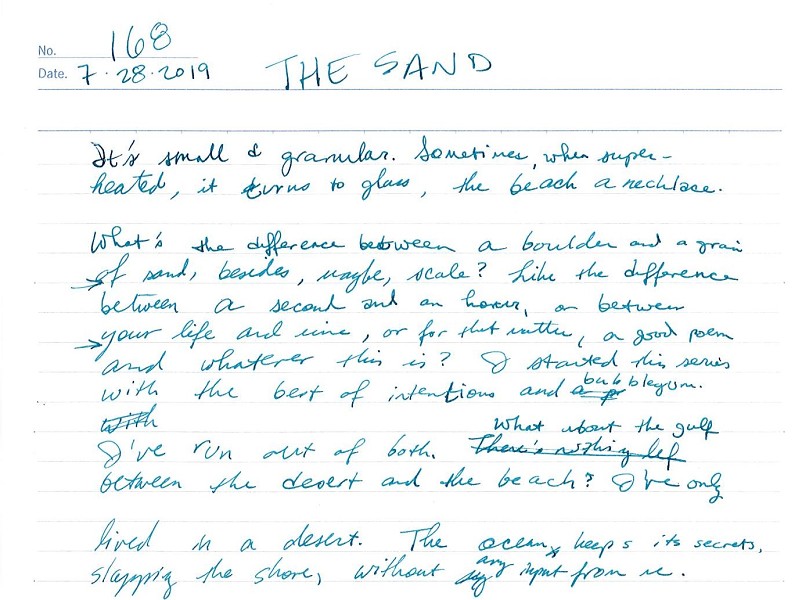 No. 168
Date. 7·28·2019 THE SAND
It's small & granular. Sometimes, when super-
heated, it turns to glass, the beach a necklace.
What's the difference between a boulder and a grain
of sand, besides, maybe, scale? Like the difference
between a second and an hour, or between
your life and mine, or for that matter, a good poem
and whatever this is? I started this series
with the best of intentions and bubblegum.
With
What about the gulf
I've run out of both. There's nothing lef
between the desert and the beach? I've only
lived in a desert. The ocean keeps its secrets,
slapping the shore, without any input from me.